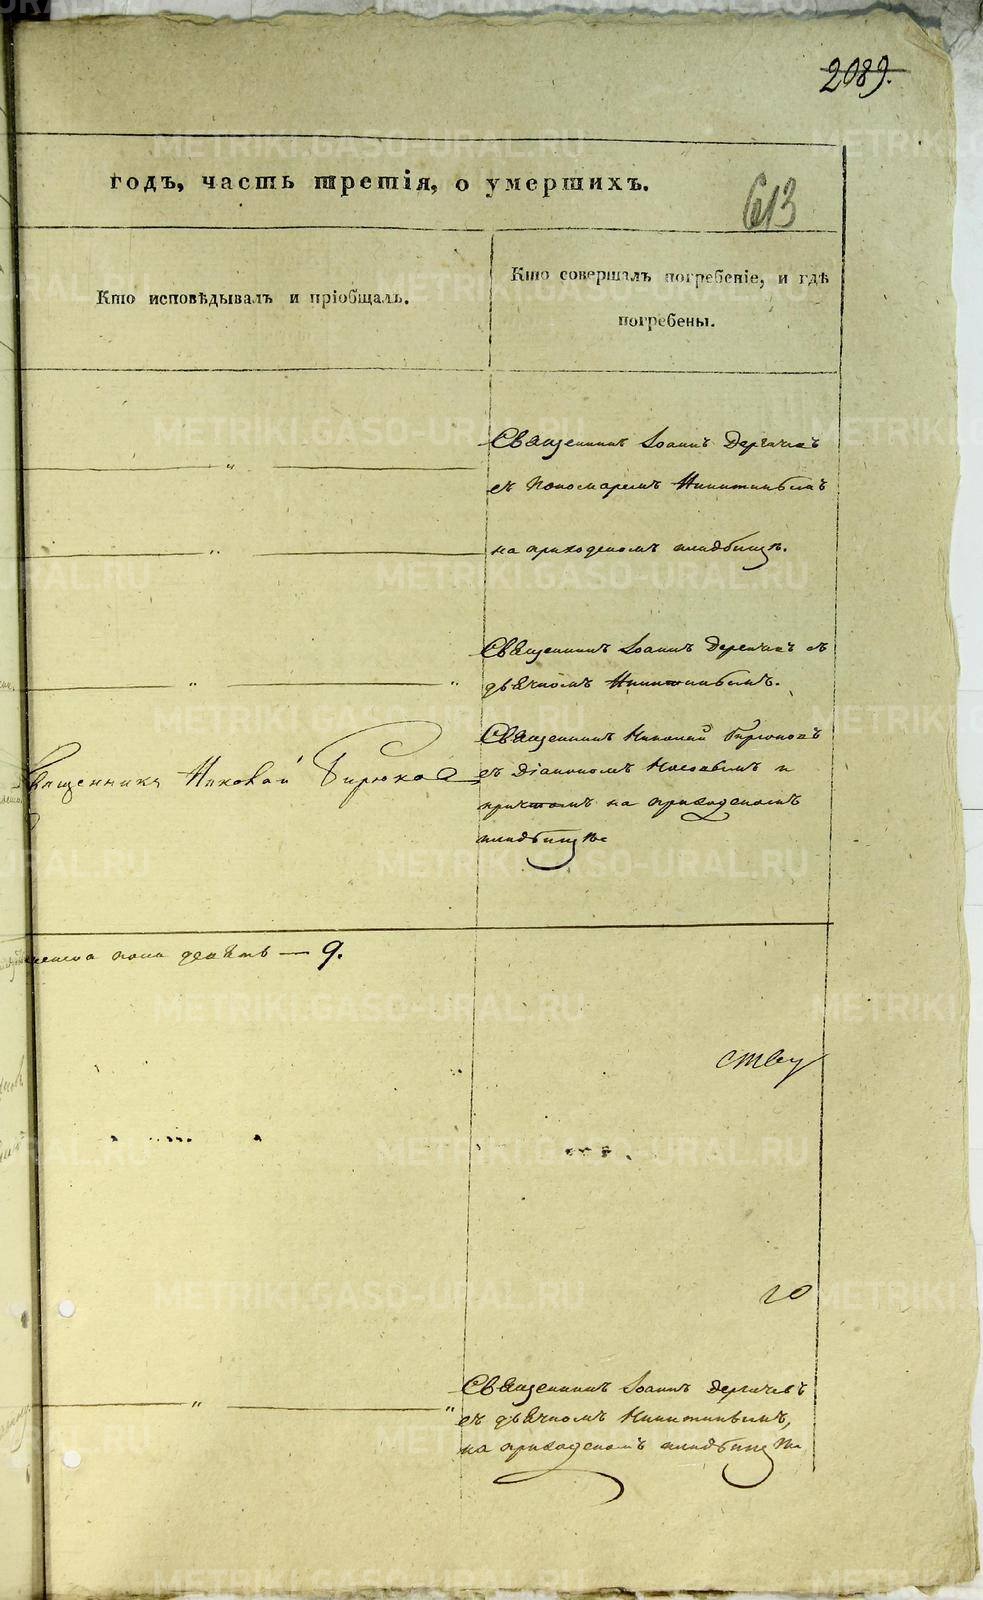 2089.
годъ, часть третія, о умершихъ.
613
Кто исповѣдывалъ и пріобщалъ.
Кто совершалъ погребеніе, и гдѣ
погребены.
Священникъ Іоаннъ Дергачевъ
съ Пономаремъ Никитинымъ
на приходскомъ кладбищѣ.
Священникъ Іоаннъ Дергачевъ съ
дьячкомъ Никитинымъ.
Священникъ Николай Бирюковъ
Священникъ Николай Бирюковъ
съ Діакономъ и
причтомъ на приходскомъ
кладбищѣ
пола девять — 9.
ству
го
Священникъ Іоаннъ Дергачевъ
съ дьячкомъ Никитинымъ,
на приходскомъ кладбищѣ
METRIKI.GASO-URAL.RU